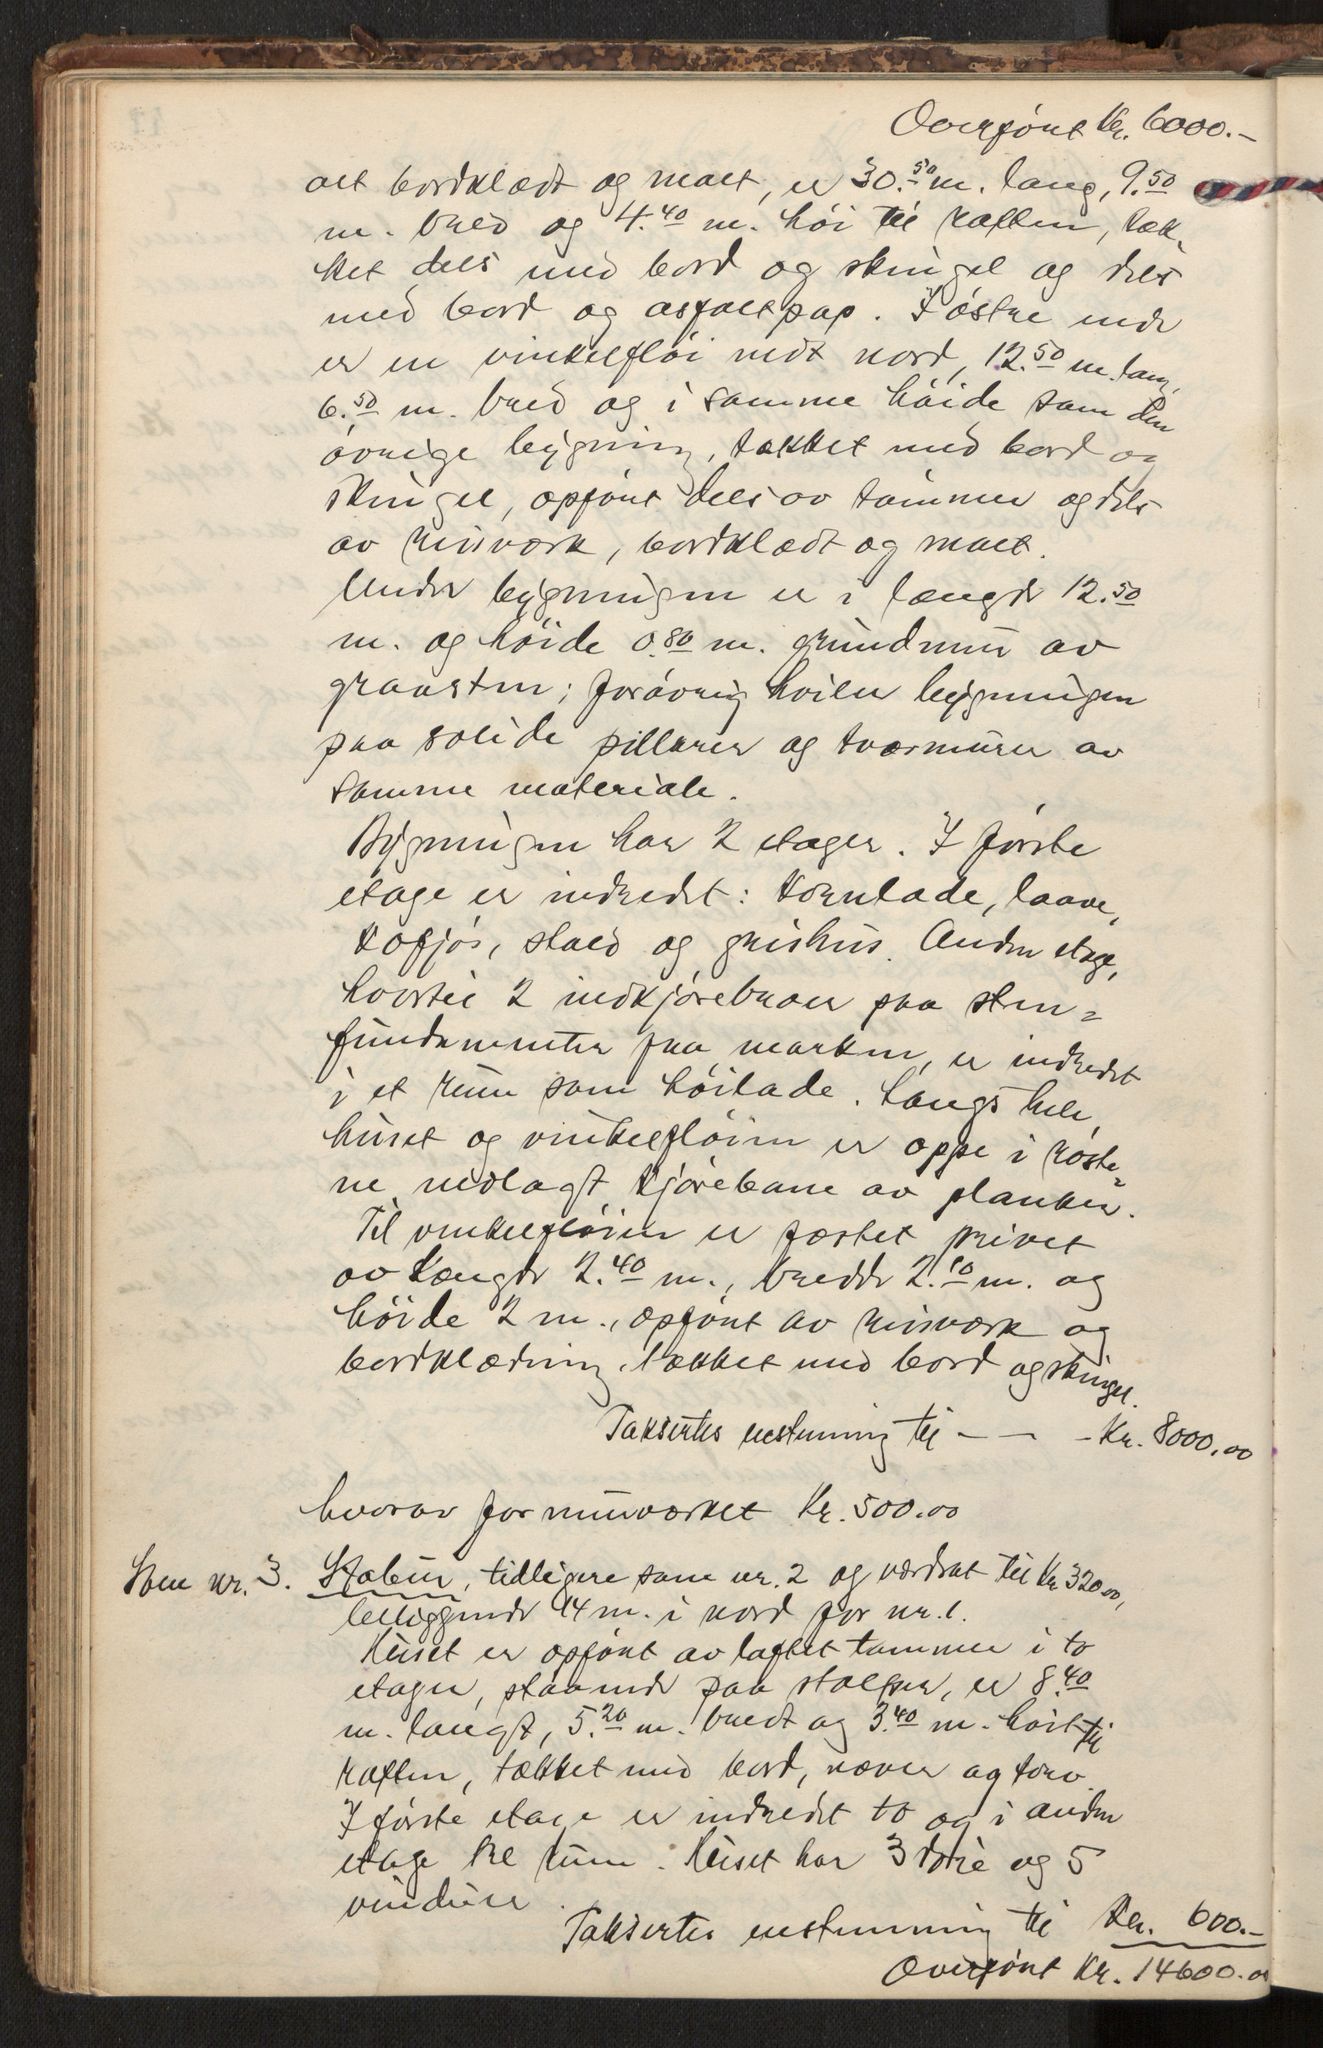 Overført Kr. 6000.-
alt bordklædt og malt, er 30.50 m. lang, 9.50
m. bred og 4.40 m. høi til raften, tæk-
ket dels med bord og skingel og dels
med bord og asfaltpap. I østre ende
er en vinkelfløi mot nord, 12.50 m. lang,
6.50 m. bred og i samme høide som den
øvrige bygning, tækket med bord og
skingel, opført dels av tømmer og dels
av reisværk, bordklædt og malt.
Under bygningen er i længde 12.50
m. og høide 0.80 m. grundmur av
graasten; forøvrig hviler bygningen
paa solide pillarer og tværmurer av
samme materiale.
Bygningen har 2 etager. I første
etage er indredet: Kornlade, laave,
kofjøs, stald og grishus. Anden etage,
hvortil 2 indkjørebroer paa sten-
fundamenter paa marken, er indredet
i et rum som høilade. Langs hele
huset og vinkelfløien er oppe i røste-
ne nedlagt kjørebane av planker.
Til vinkelfløien er fæstet privet
av længde 2.40 m., bredde 2.10 m. og
høide 2 m., opført av reisværk og
bordklædning, tækket med bord og skingel.
Taksertes enstemmig til - - - Kr. 8000.00
hvorav for murværket Kr. 500.00
Hus nr. 3. Stabur, tidligere som nr. 2 og værdsat til Kr 320.00,
beliggende 14 m. i nord for nr. 1.
Huset er opført av laftet tømmer i to
etager, staaende paa stolper, er 8.40
m. langt, 5.20 m. bredt og 3.40 m. høit til
raften, tækket med bord, næver og torv.
I første etage er indredet to og i anden
etage tre rum. Huset har 3 døre og 5
vinduer.
Taksertes enstemmig til Kr. 600.-
Overført Kr. 14600.00